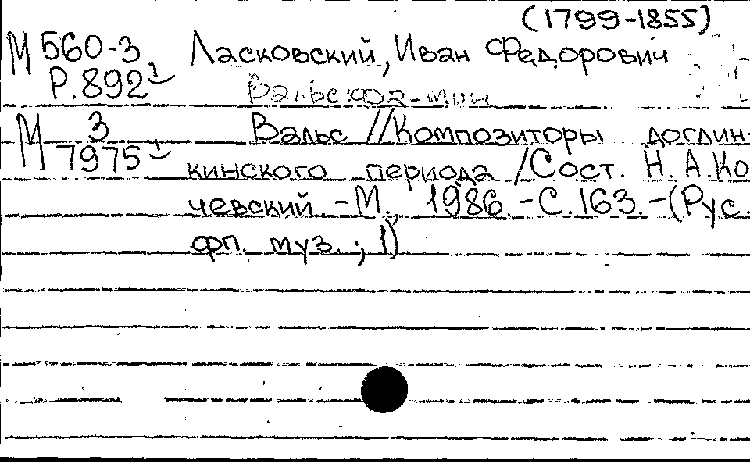 (1799-1855)
М 560-3 Ласковский, Иван Федорович
Р.892 1 Вальс фа-мин
М 3 Вальс // Композиторы доглин-
7975 1 кинского периода / Сост. Н.А.Ко
чевский. - М., 1986. - С.163. - (Рус.
фп. муз. ; 1)